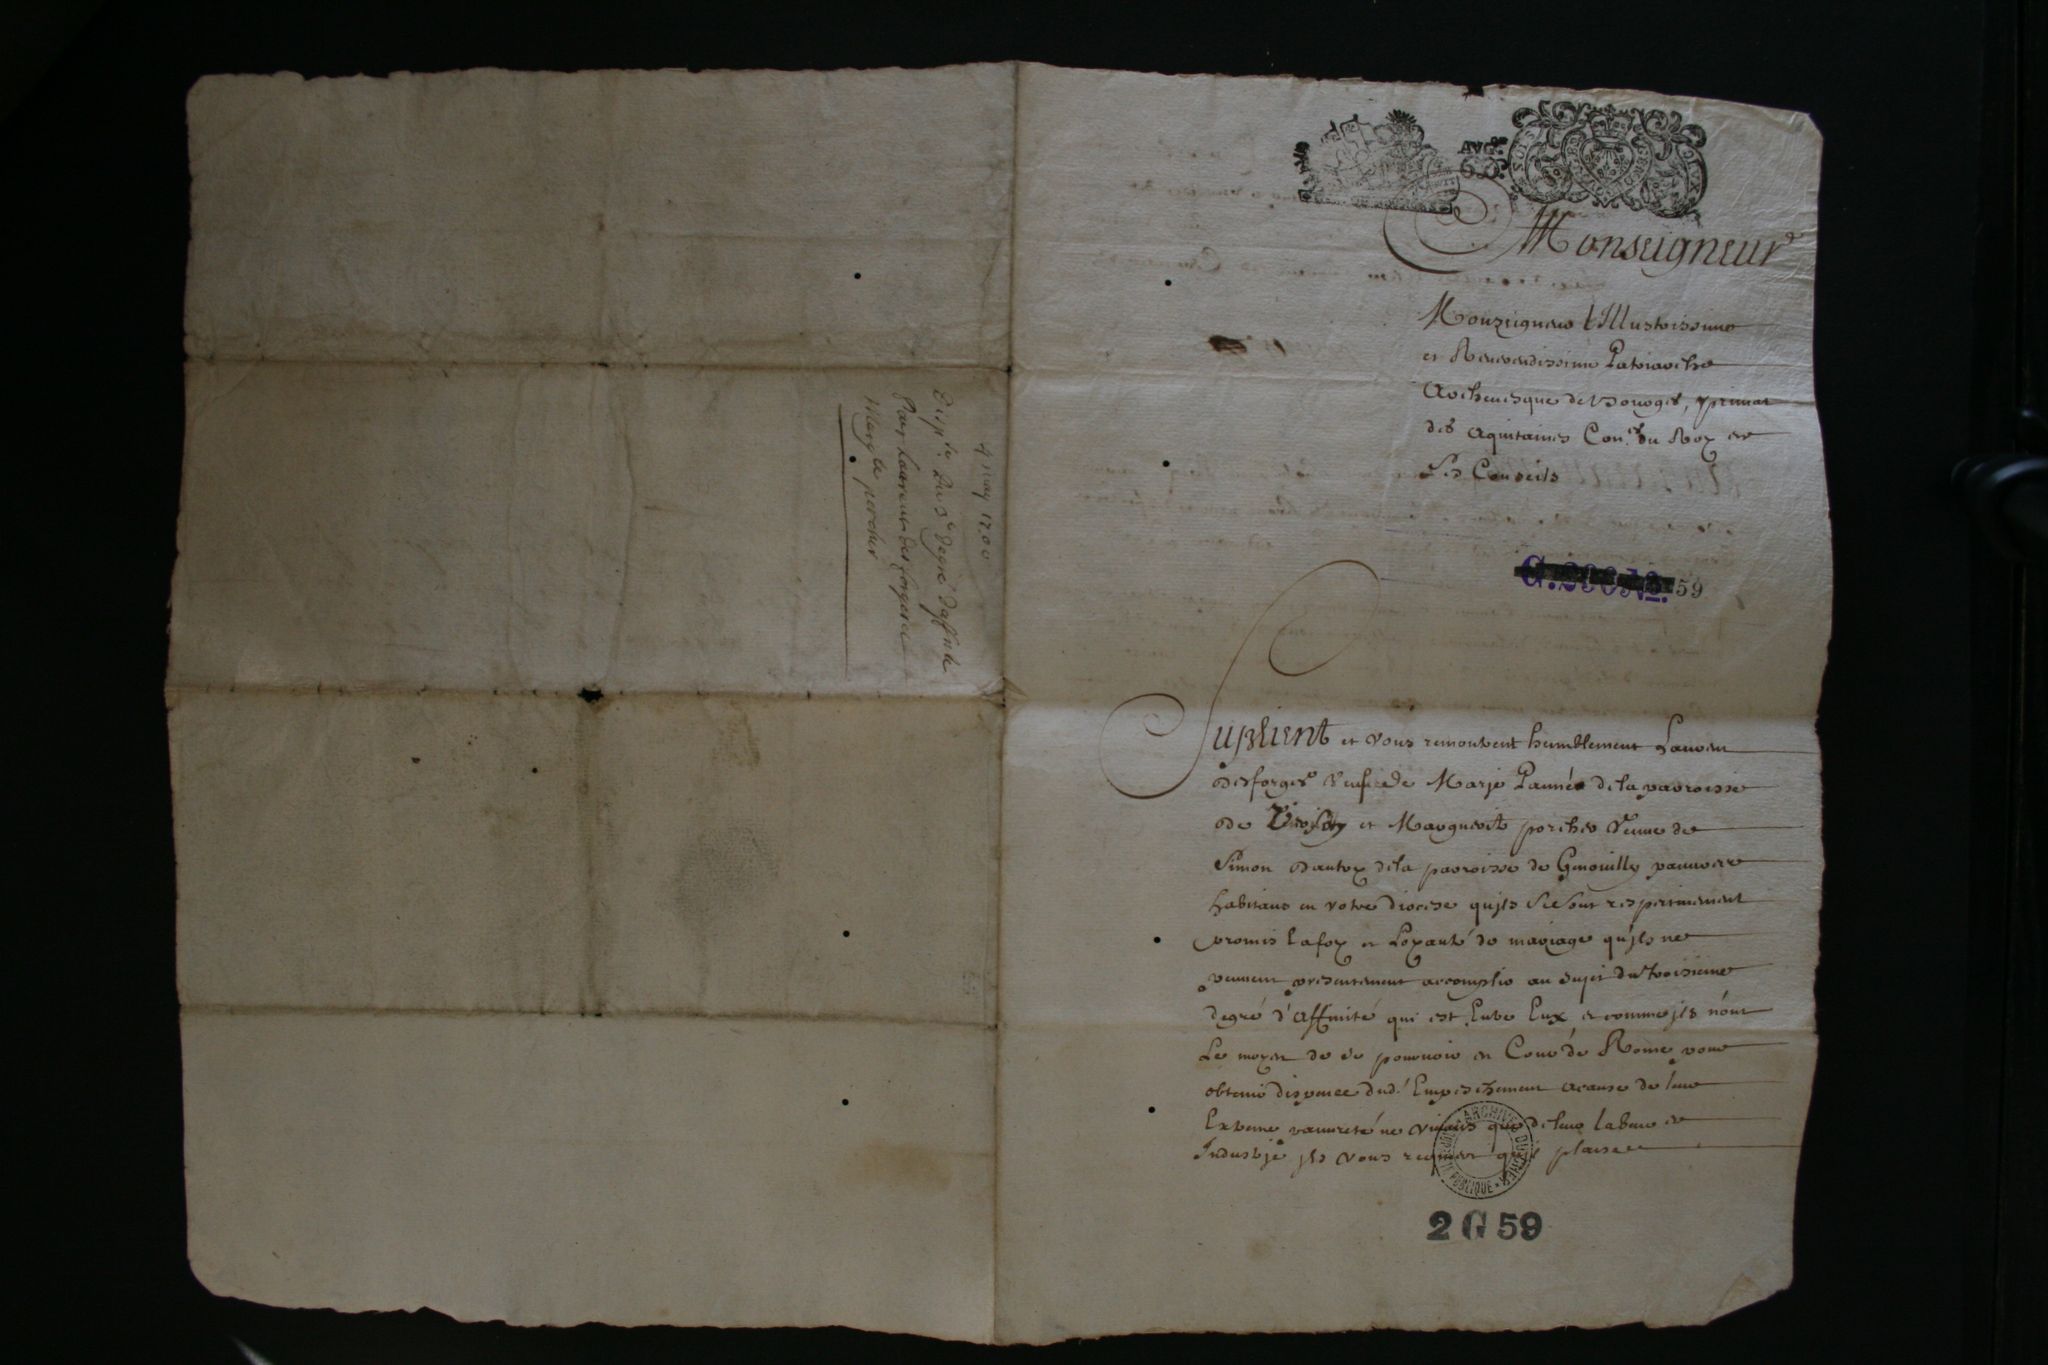 4 may 1700
Du 3e degré d'affinité
Pour Laurent desforges et
Marg.te porcher
AVG.on
Monseigneur
Monseigneur l'Illustrissime
et Reverendissime Patriarche
Archevesque de Bourges, primat
des Aquitaines Con.er du Roy en
Ses Conseils
G.
59
Suplient et vous remontrent humblement Lauren
desforges veuf de Marie de la parroisse
de et Marguerit porcher veuve de
Simon dela parroisse de Genouilly pauvre
habitans en votre diocese qu'ils se sont
promis la foy et Loyauté de mariage qu'ils ne
peuvent presentement accomplir au sujet du troisieme
degré d'affinité qui est Entre Eux et comme ils n'ont
Le moyen de se pourvoir en Cour de Rome pour
obtenir dispence dud. Empeschement acause de leur
Extreme pauvreté ne vivants que de leur labeur et
Industrie ils vous requierent qu'il plaise
ARCHIVES DU CHER
PUBLIQUE
2 G 59